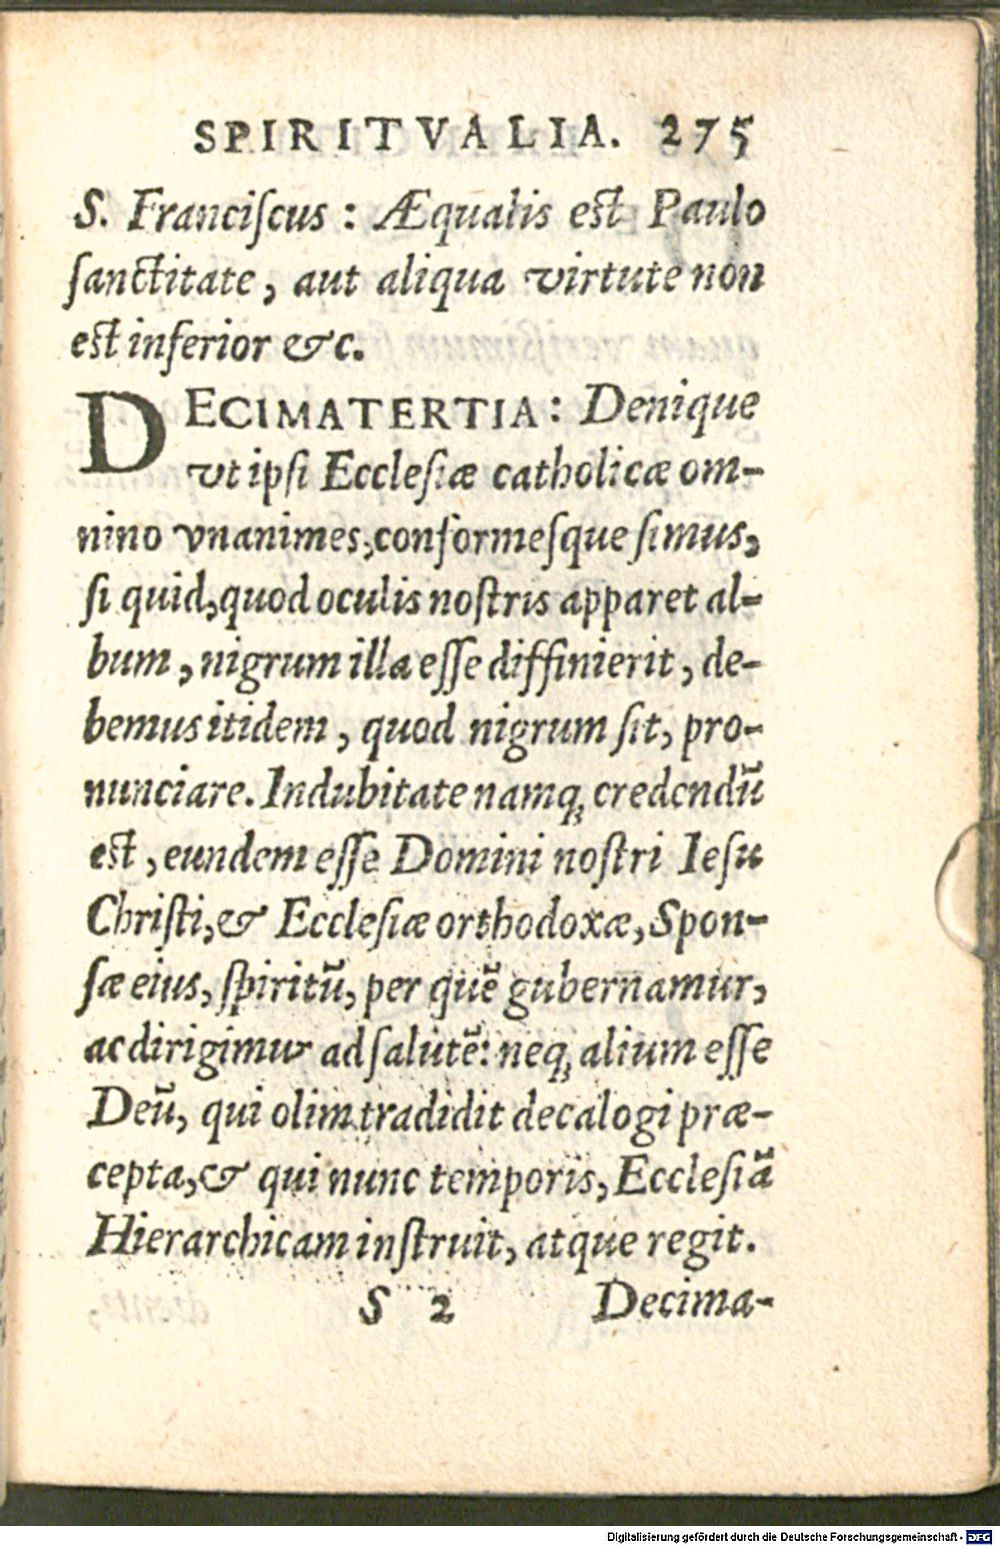 SPIRITVALIA. 275
S. Franciſcus : Æqualis eſt Paulo
ſanctitate, aut aliqua virtute non
eſt inferior &c.
DECIMATERTIA: Denique
vt ipſi Eccleſiæ catholicæ om-
nino vnanimes, conformeſque ſimus,
ſi quid, quod oculis noſtris apparet al-
bum, nigrum illa eſſe diffinierit, de-
bemus itidem, quod nigrum ſit, pro-
nunciare. Indubitate namq; credendũ
eſt, eundem eſſe Domini noſtri Ieſu
Chriſti, & Eccleſiæ orthodoxæ, Spon-
ſæ eius, ſpiritũ, per quẽ gubernamur,
ac dirigimur ad ſalutẽ: neq; alium eſſe
Deũ, qui olim tradidit decalogi præ-
cepta, & qui nunc temporis, Eccleſiã
Hierarchicam inſtruit, atque regit.
S 2 Decima-
Digitalisierung gefördert durch die Deutsche Forschungsgemeinschaft - DFG